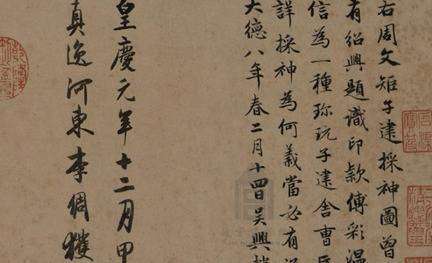 右周文矩子建採神圖曾
有紹興題識印款傅彩温
信為一種珎玩子建舍曹
詳採神為何義當必有
大德八年春二月十四日吳興
皇慶元年十二月甲
真逸河東李倜獲